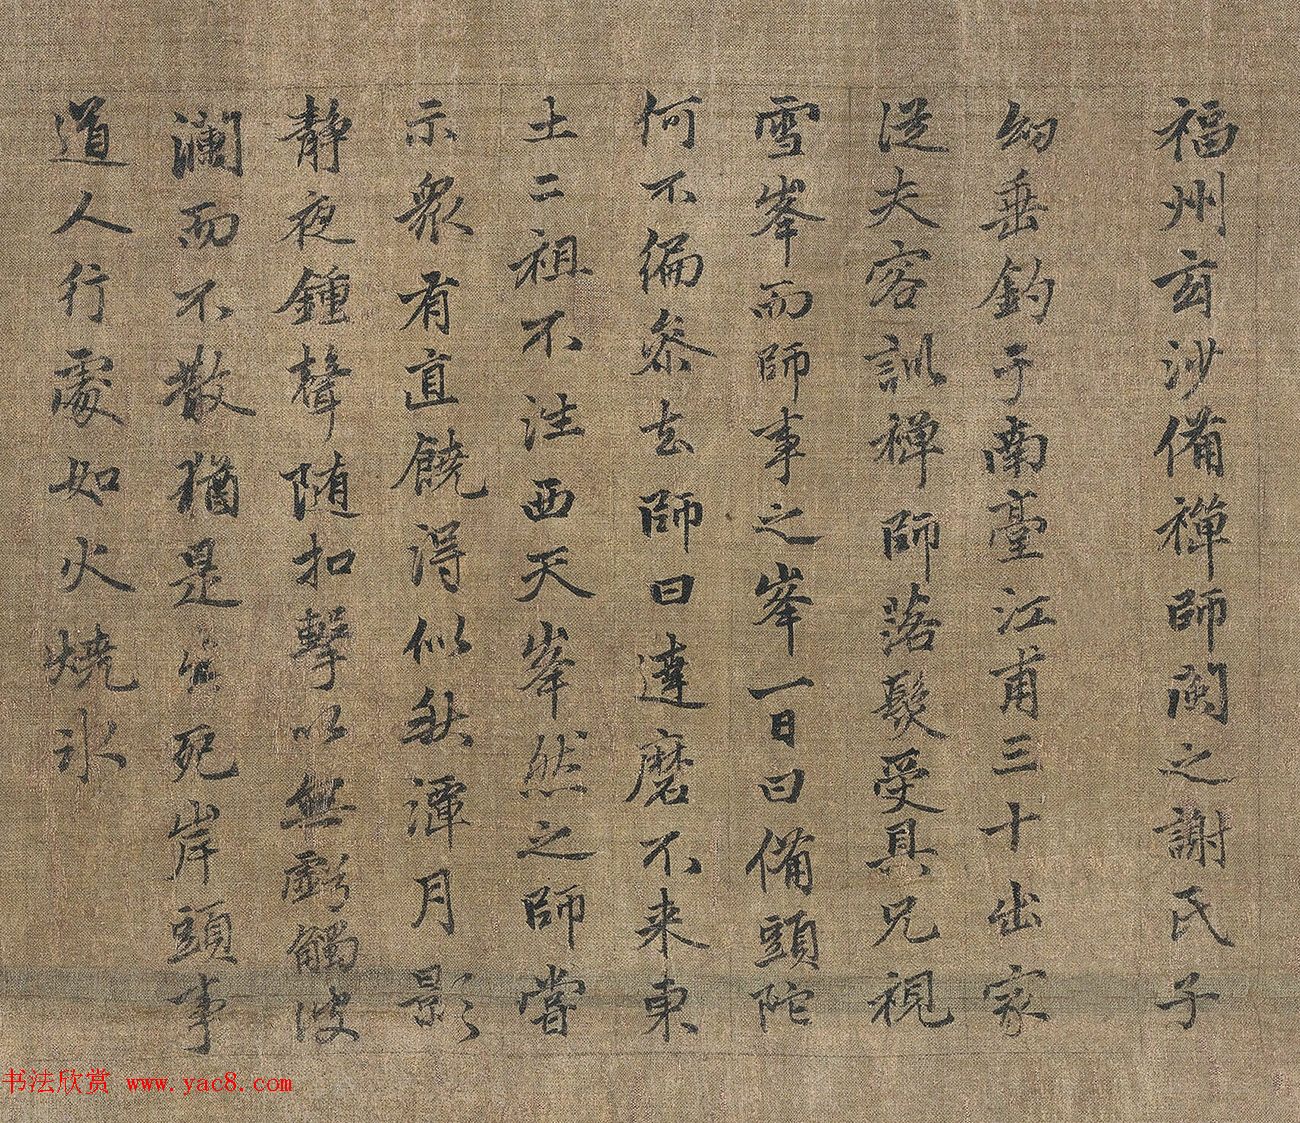 福州玄沙備禪師閩之謝氏子
幼垂釣于南臺江甫三十出家
從夫容訓禪師落髮受具兄視
雪峯而師事之峯一日曰備頭陀
何不徧叅去師曰達磨不来東
土二祖不往西天峯然之師嘗
示衆有直饒淂似秋潭月影
靜夜鍾聲隨扣擊以無虧觸波
瀾而不散猶是生死岸頭事
道人行處如火燒氷
书法欣赏 www.yac8.com